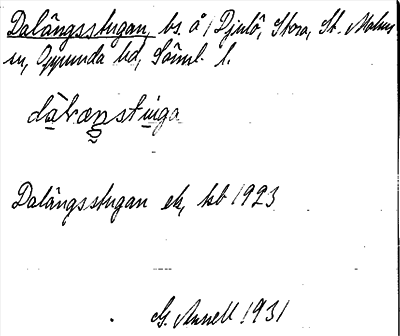 Dalängsstugan, bs. å / Djulö, Stora, St. Malms
sn, Oppunda hd, Söml. l.
Dalängsstugan ek, kb 1923
G. Annell 1931